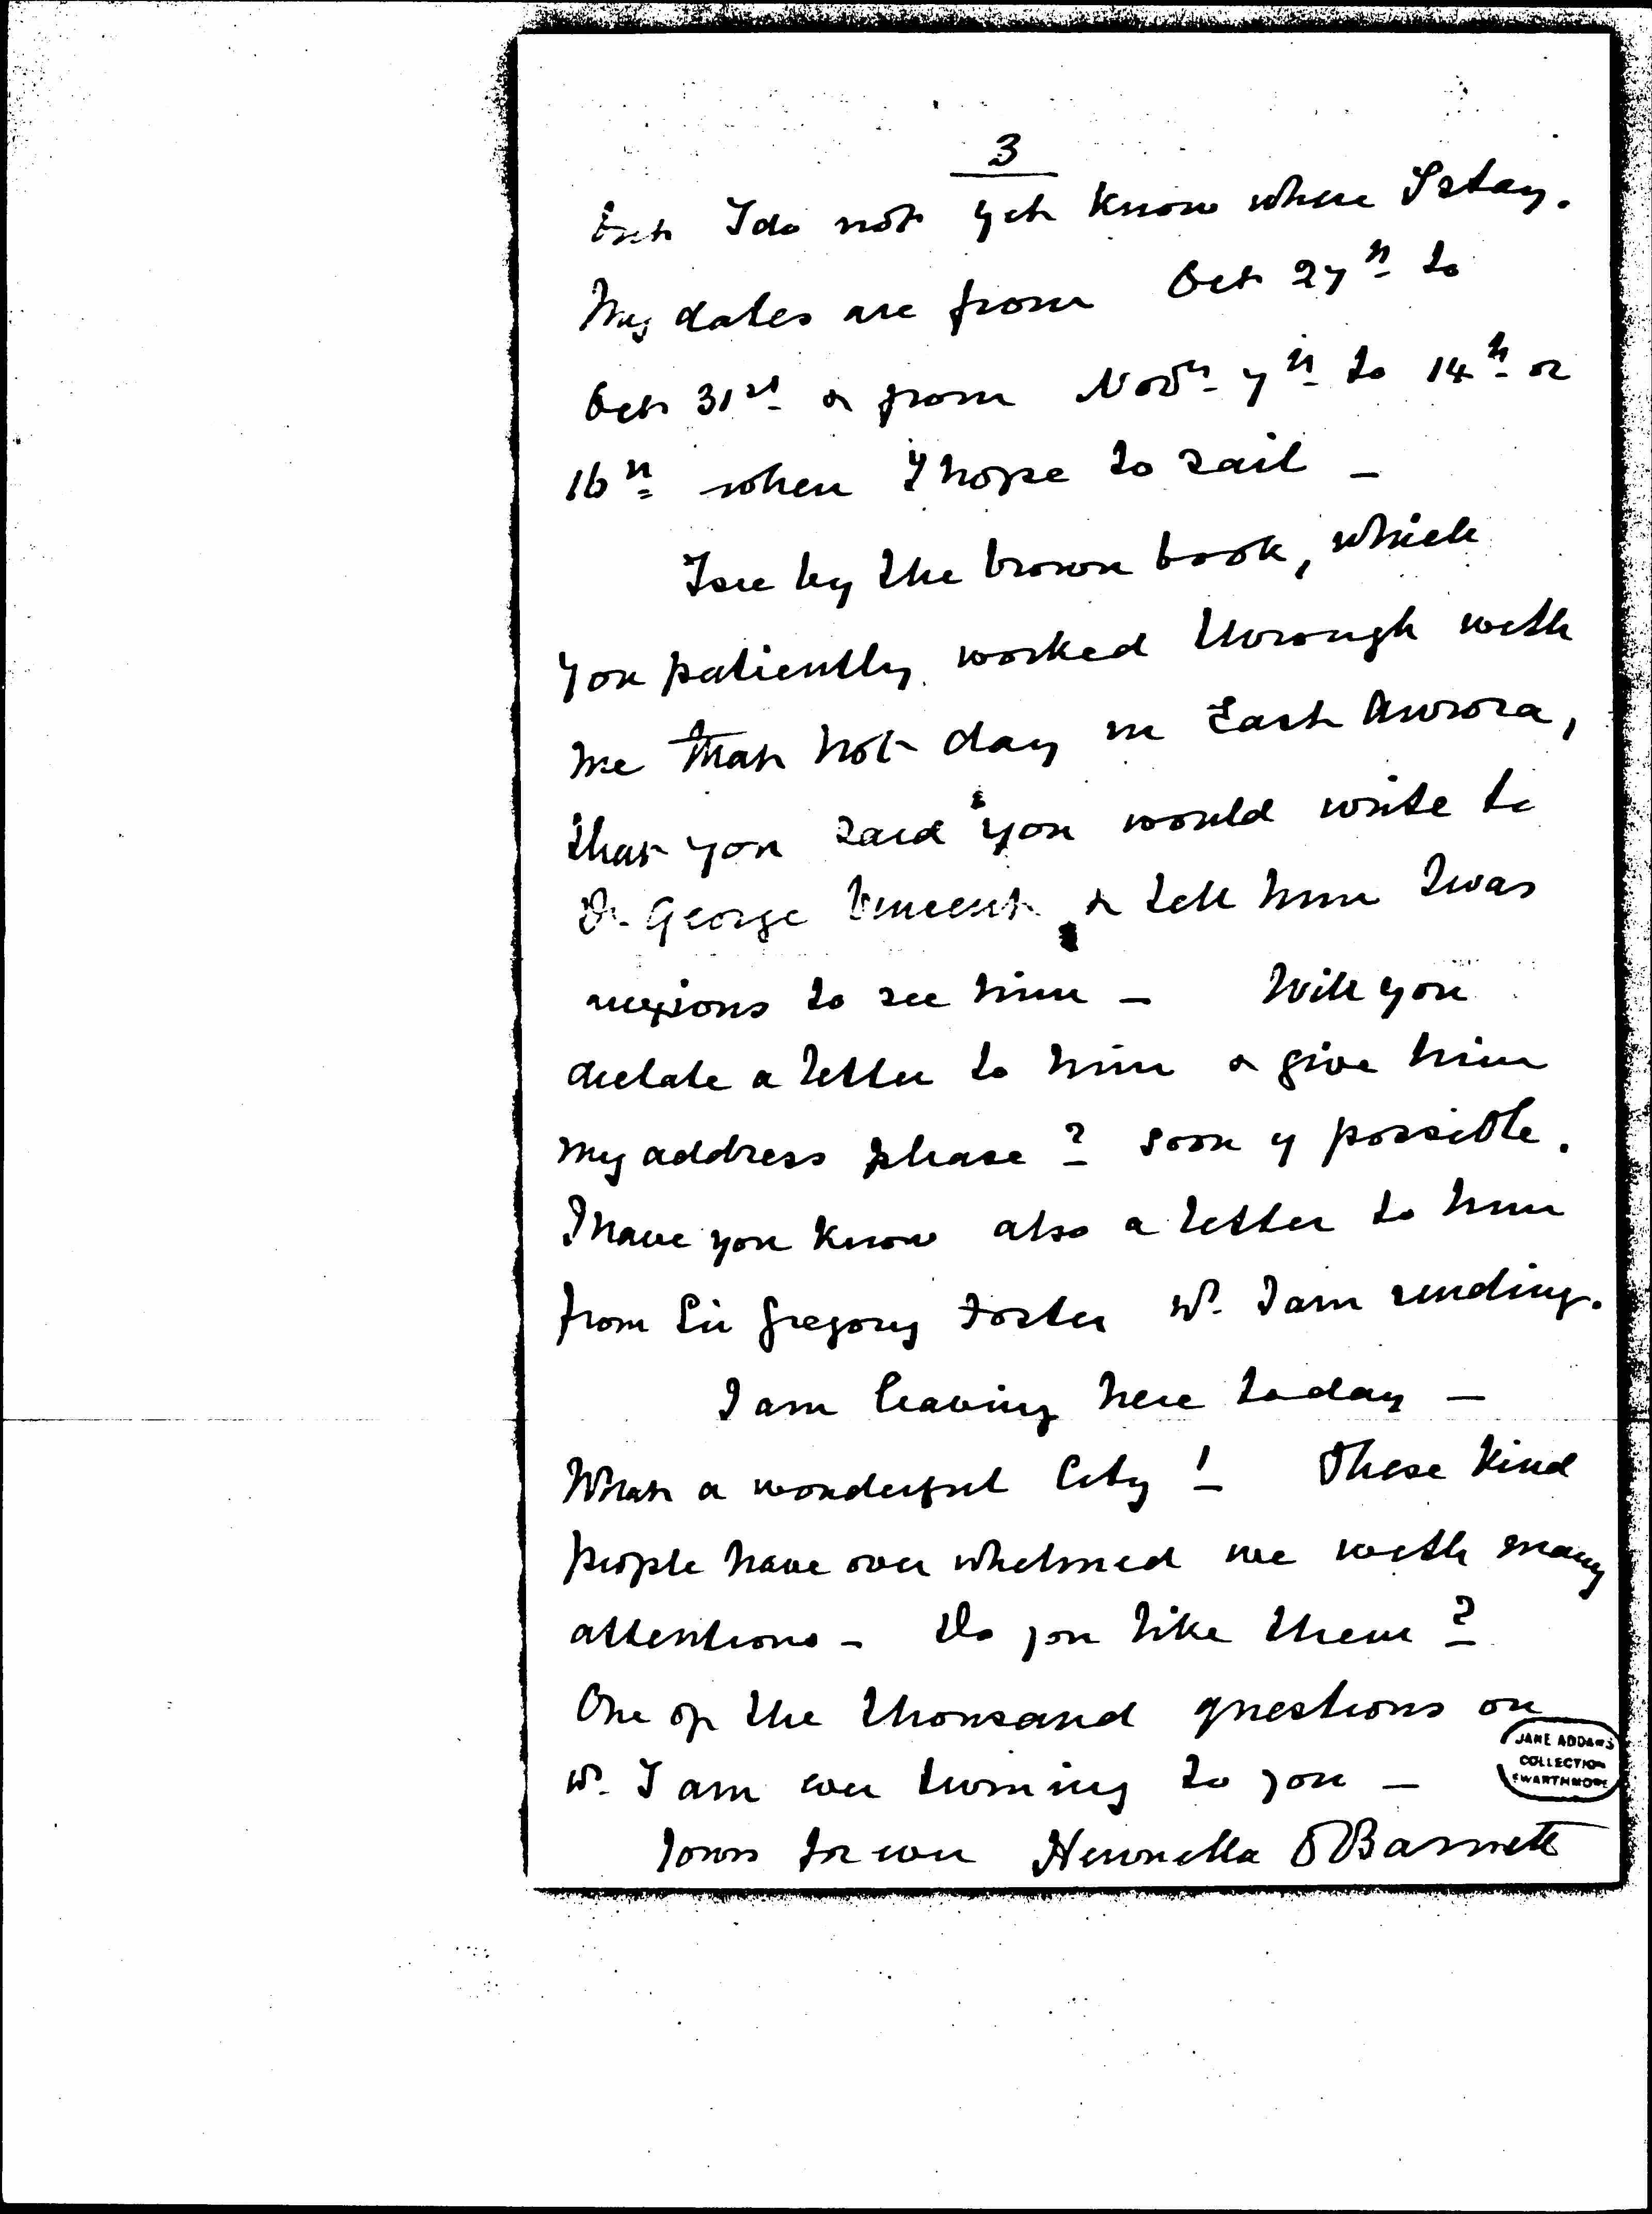 3
but I do not yet know where I stay.
My dates are from Oct 27th to
Oct 31st & from Novr 7th to 14th or
16th when I hope to sail –
I see by the brown book, which
you patiently worked through with
me that hot day in East Aurora,
that you said you would write to
Dr George Vincent & tell him I was
anxious to see him – Will you
dictate a letter to him & give him
my address please? soon if possible.
I have you know also a letter to him
from Sir Gregory Foster wh. I am sending.
I am leaving here today –
What a wonderful City! These kind
people have over whelmed me with many
attentions – Do you like them?
One of the thousand questions on
wh. I am ever turning to you –
JANE ADDAMS
COLLECTION
SWARTHMORE
Yours for ever Henrietta O Barnett